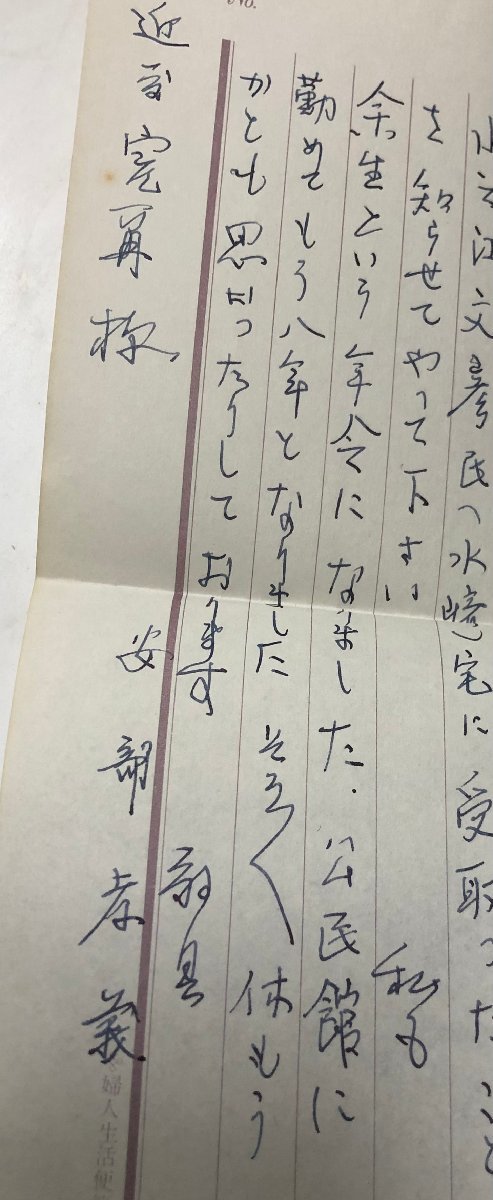 文孝氏の水崎宅に受取ったこと
を知らせてやって下さい
私も
余生という年令になりました.公民館に
勤めてもう八年となりました そろ〱休もう
かとも思だったりしております
敬具
安部孝義
様
No.
婦人生活